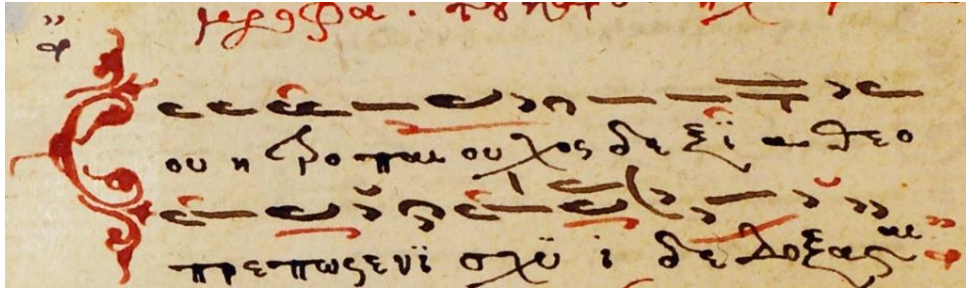 Σου η τρο παι ου χος δε ξϊ α θεο
πρεπως ενϊ σχϋ ϊ δε δοξασται